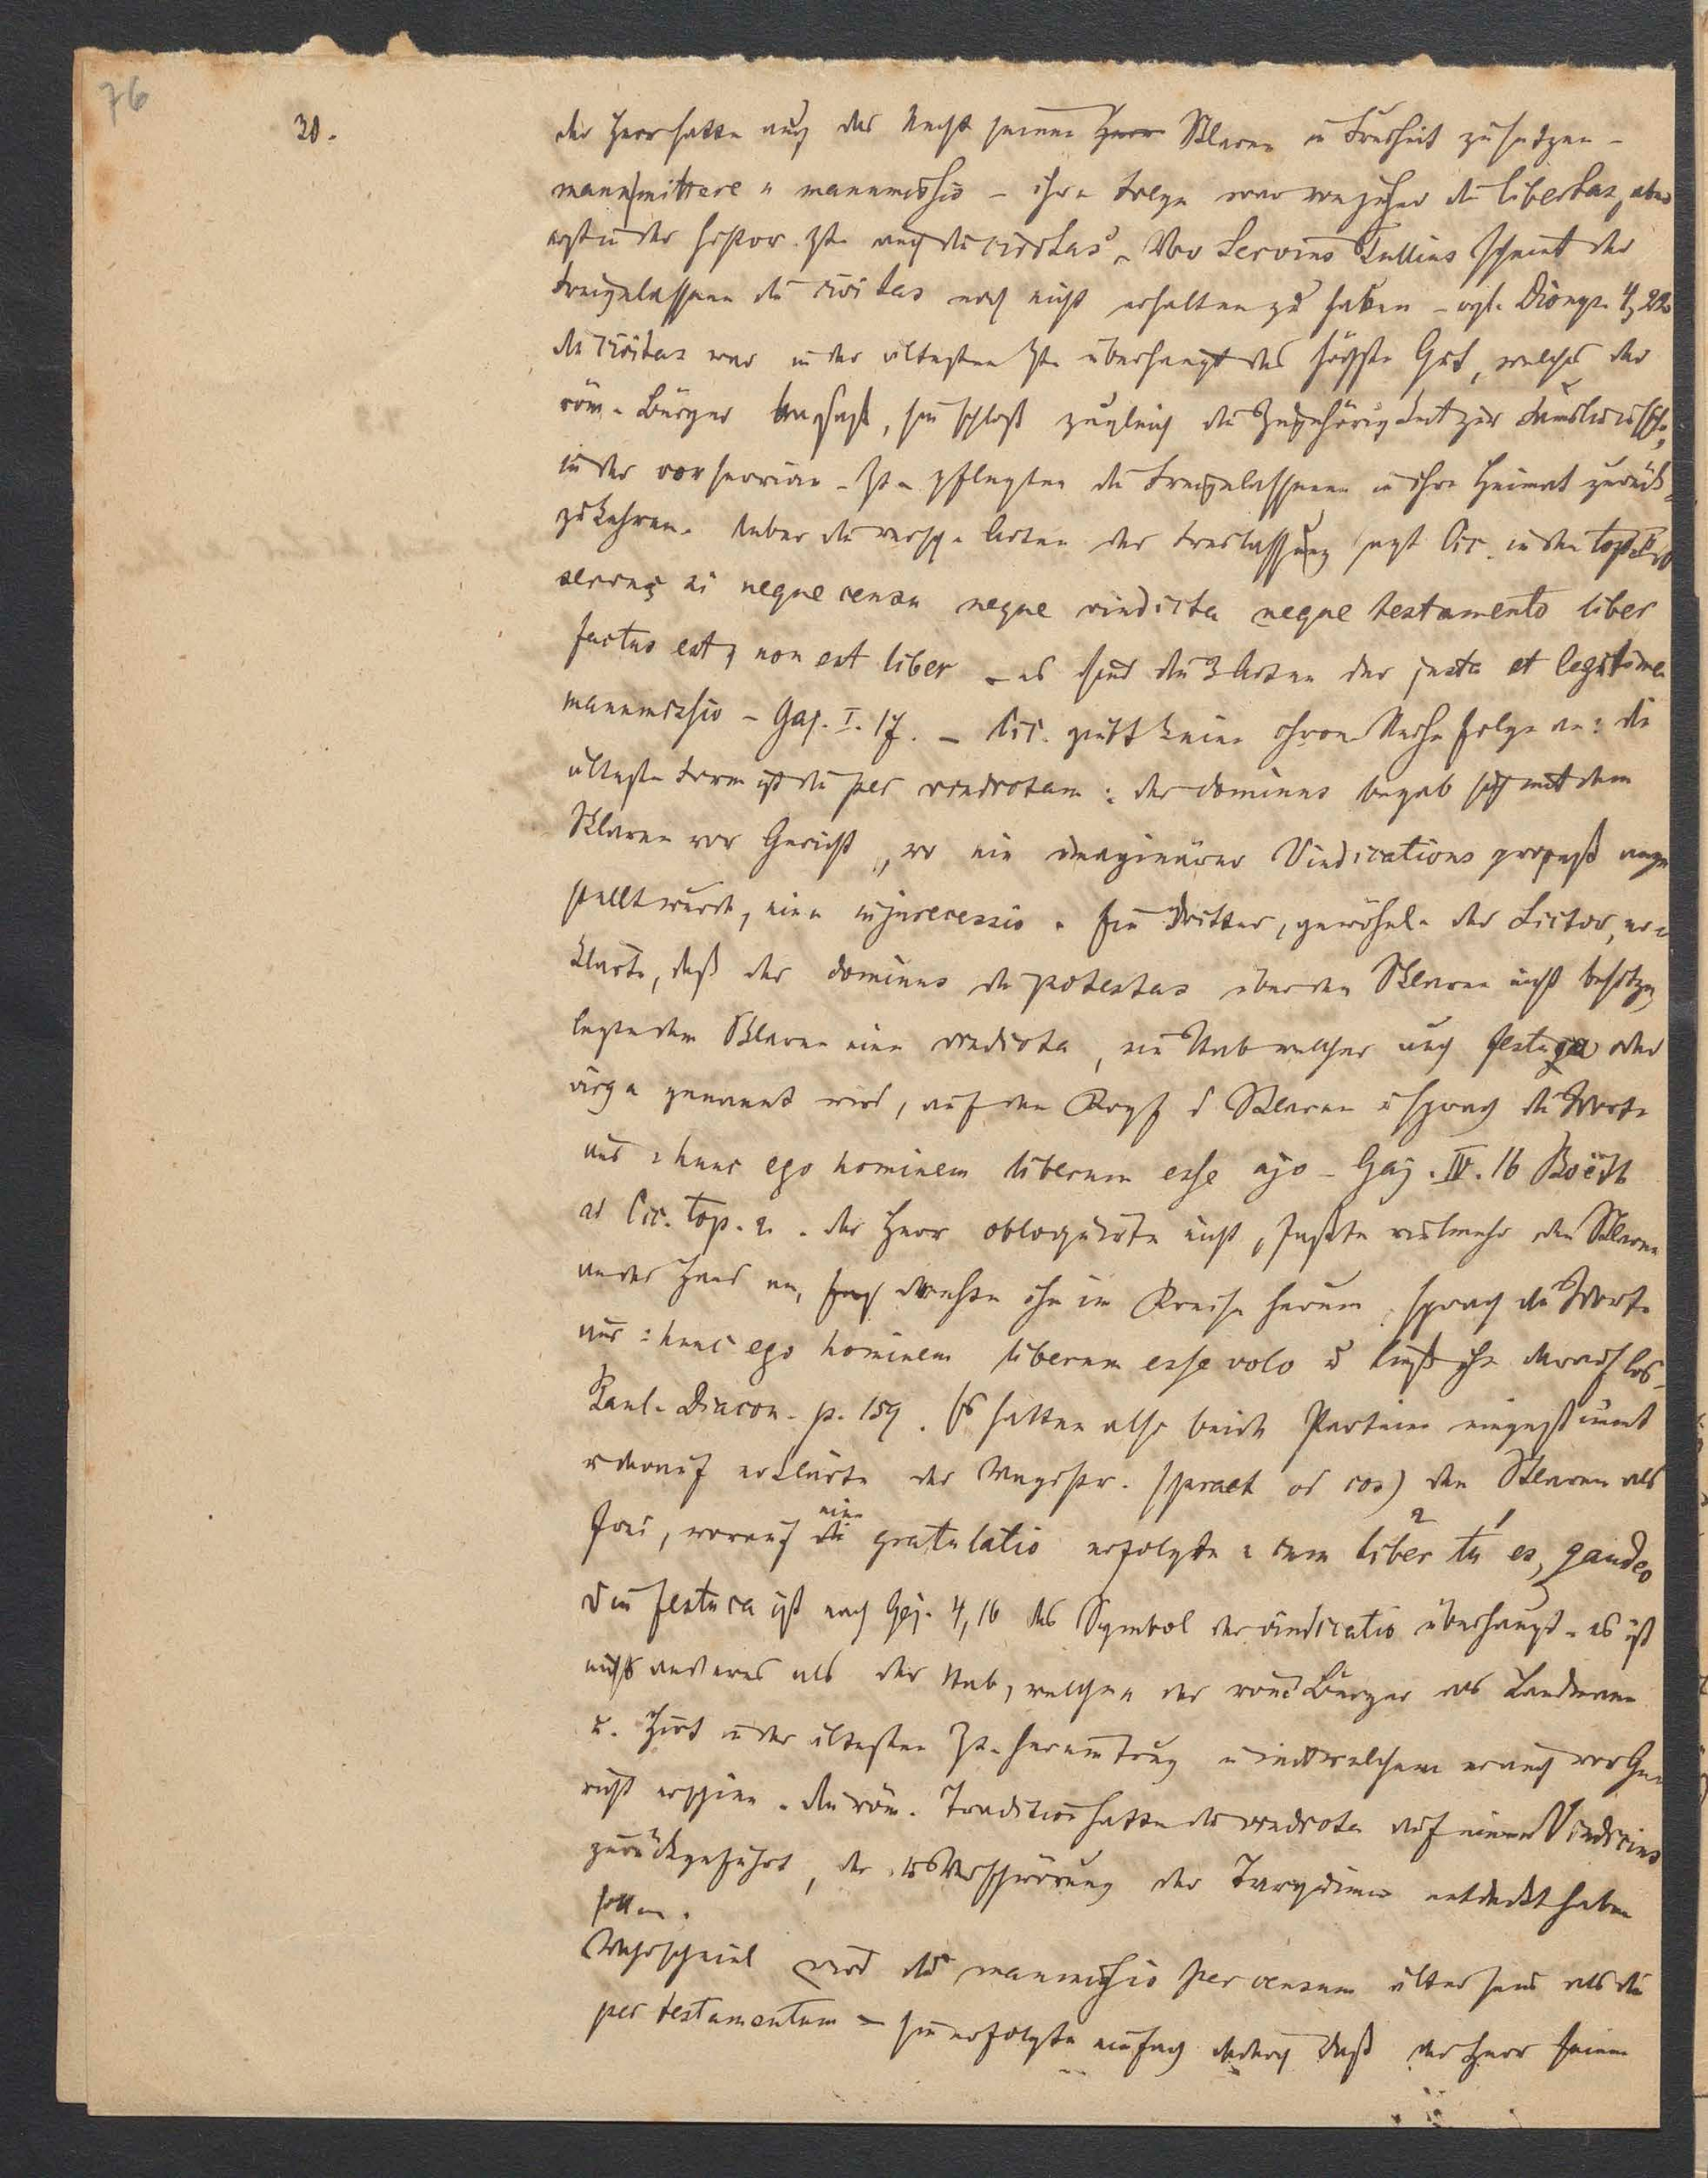 76
30.
der Herr hatte auch das Recht seinen Herr Sklaven in Freiheit zu setzen -
manumittere u manumissio - ihre Folge war von jeher die libertas, aber
erst in der histor. Zt. auch die civitas. Vor Servius Tullius scheint der
Freigelassene die civitas noch nicht erhalten zu haben - vgl. Dionys. 4, 22.
die civitas war in der ältesten Zt. überhaupt das höchste Gut, welches der
röm. Bürger besaß, sie schloß zugleich die Zugehörigkeit zur
in der vorservian. Zt. pflegten die Freigelassenen in ihre Heimat zurück
zukehren. Ueber die versch. Arten der Freilassung sagt Cic. in den top.
servus si neque censu neque vindicta neque testamento liber
factus est, non est liber - es sind die 3 Arten der justa et legitima
manumissio - Gaj. I. 17. - Cic. giebt keine chron. Reihenfolge an: die
älteste Form ist die per vindictam: der dominus begab sich mit dem
Sklaven vor Gericht, wo ein imaginärer Vindications prozeß ange
stellt wurde, eine injurecessio. Ein Dritter, gewöhnl. der Lictor, er=
klärte, daß der dominus die potestas über den Sklaven nicht besitze,
legte dem Sklaven eine vindicta, ein Stab welcher auch festuca oder
virga genannt wird, auf den Kopf d Sklaven u sprach die Worte
aus: hunc ego hominem liberum esse ajo - Gaj. IV. 16 Boëth
ad Cic. top. 2. der Herr obloquirte nicht, faßte vielmehr den Sklaven
an der Hand an, drehte ihn im Kreise herum, sprach die Worte
aus: hunc ego hominem liberum esse volo u ließ ihn darauf los.
Paul. Diacon. p. 159. Es hatten also beide Parteien eingestimmt
u darauf erklärte der Magistr. (praet od cos) den Sklaven als
frei, worauf die eine gratulatio erfolgte: cum liber tu es, gaudeo
Die festuca ist nach Gaj. 4, 16 das Symbol der vindicatio überhaupt. es ist
nichts anderes als der Stab, welchen der röm Bürger als Landmann
u. Hirt in der ältesten Zt. herumtrug u mit welchem er auch vor Ge=
richt erschien. Die röm. Tradition hatte die vindicta auf einen Vindicius
zurückgeführt, der die Verschwörung der Tarquinier entdeckt haben
sollen.
Wahrscheinl wird die manumissio per censum älter sein als die
per testamentum - sie erfolgte einfach dadurch daß der Herr seinen